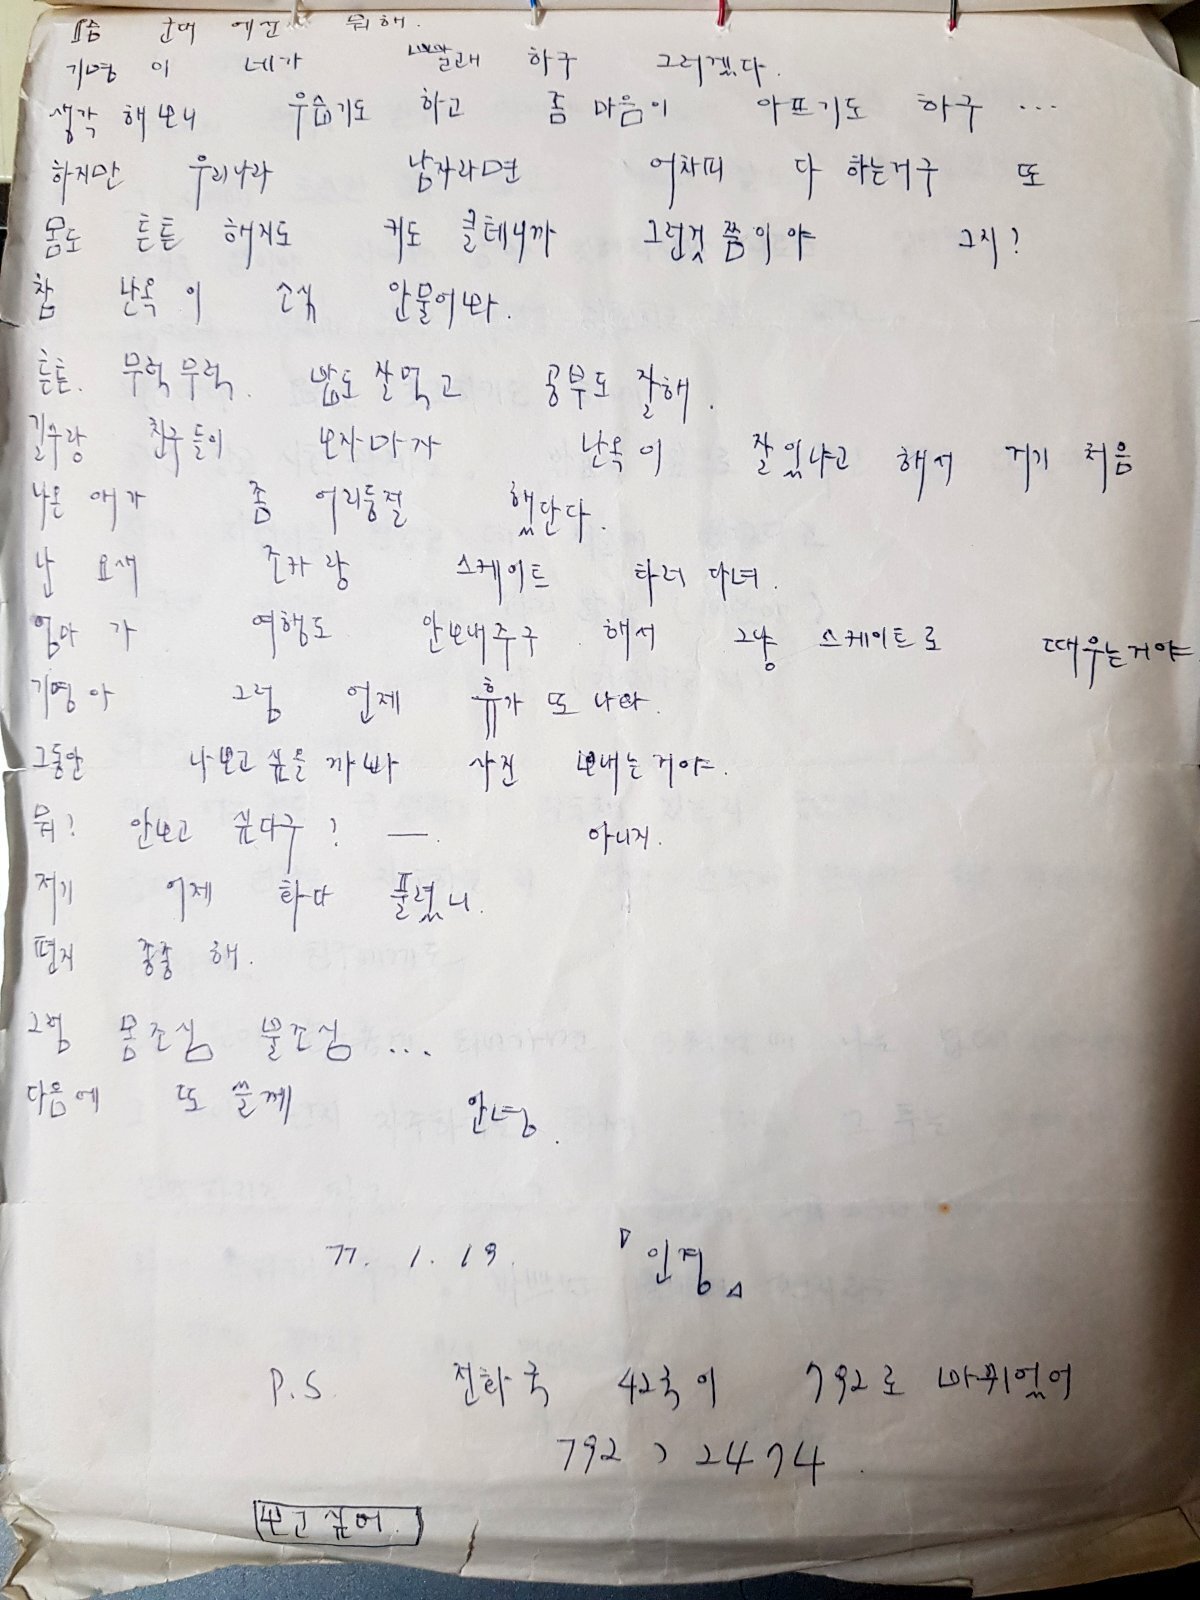 요즘 군대에선 뭐해.
기영이 네가 빨래 하구 그러겠다.
생각해보니 우습기도 하고 좀 마음이 아프기도 하구 ...
하지만 우리나라 남자라면 어차피 다 하는거구 또
몸도 튼튼 해지도 키도 클테니까 그런것 쯤이야 그지?
참 난옥이 소식 안물어봐.
튼튼. 무럭무럭. 밥도 잘먹고 공부도 잘해.
길수랑 친구들이 보자마자 난옥이 잘있냐고 해서 거기 처음
나온 애가 좀 어리둥절 했단다.
난 요새 조카랑 스케이트 타러 다녀.
엄마가 여행도 안보내주구 해서 그냥 스케이트로 때우는거야
기영아 그럼 언제 휴가 또 나와.
그동안 나보고 싶을까봐 사진 보내는거야.
뭐? 안보고 싶다구? — 아니지.
저기 어제 화다 풀렸니.
편지 종종 해.
그럼 몸조심 불조심 ...
다음에 또 쓸께 안녕.
77. 1. 19. 「인경」
P.S. 전화국 42국이 792로 바뀌었어
792 ) 2474.
보고싶어.